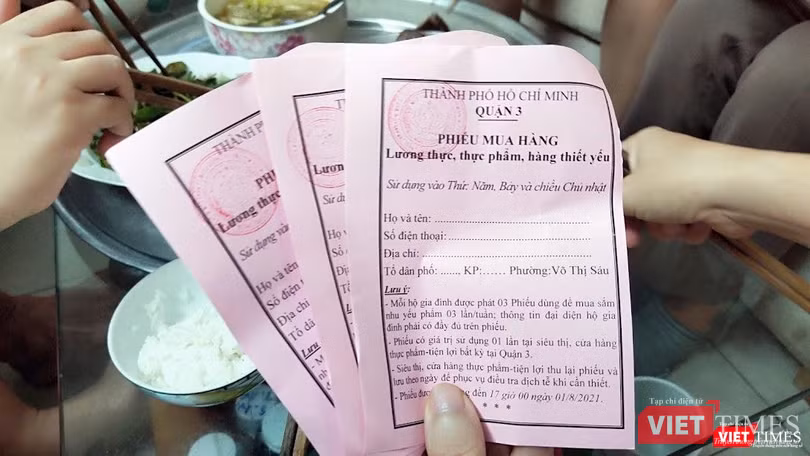 THÀNH PHỐ HỒ CHÍ MINH
QUẬN 3
PHIẾU MUA HÀNG
Lương thực, thực phẩm, hàng thiết yếu
Sử dụng vào Thứ: Năm, Bảy và chiều Chủ nhật
Họ và tên: ..........................................
Số điện thoại: ......................................
Địa chỉ: ..............................................
Tổ dân phố: ......, KP:...... Phường:Võ Thị Sáu
Lưu ý:
- Mỗi hộ gia đình được phát 03 Phiếu dùng để mua sắm
nhu yếu phẩm 03 lần/tuần; thông tin đại diện hộ gia
đình phải có đầy đủ trên phiếu.
- Phiếu có giá trị sử dụng 01 lần tại siêu thị, cửa hàng
thực phẩm-tiện lợi bất kỳ tại Quận 3.
- Siêu thị, cửa hàng thực phẩm-tiện lợi thu lại phiếu và
lưu theo ngày để phục vụ điều tra dịch tễ khi cần thiết.
- Phiếu đến 17 giờ 00 ngày 01/8/2021.
* * *
THÀNH PHỐ
Lương
Sử dụng
Họ và
Số điện
Địa chỉ
Tổ dân
Lưu ý:
- Mỗi
THÀNH PHỐ
Lương thực
Sử dụng vào
Họ và tên
Số điện th
Địa chỉ
Tổ dân
Lưu ý:
Tạp chí điện tử
VIETTIMES
VIETTIMES